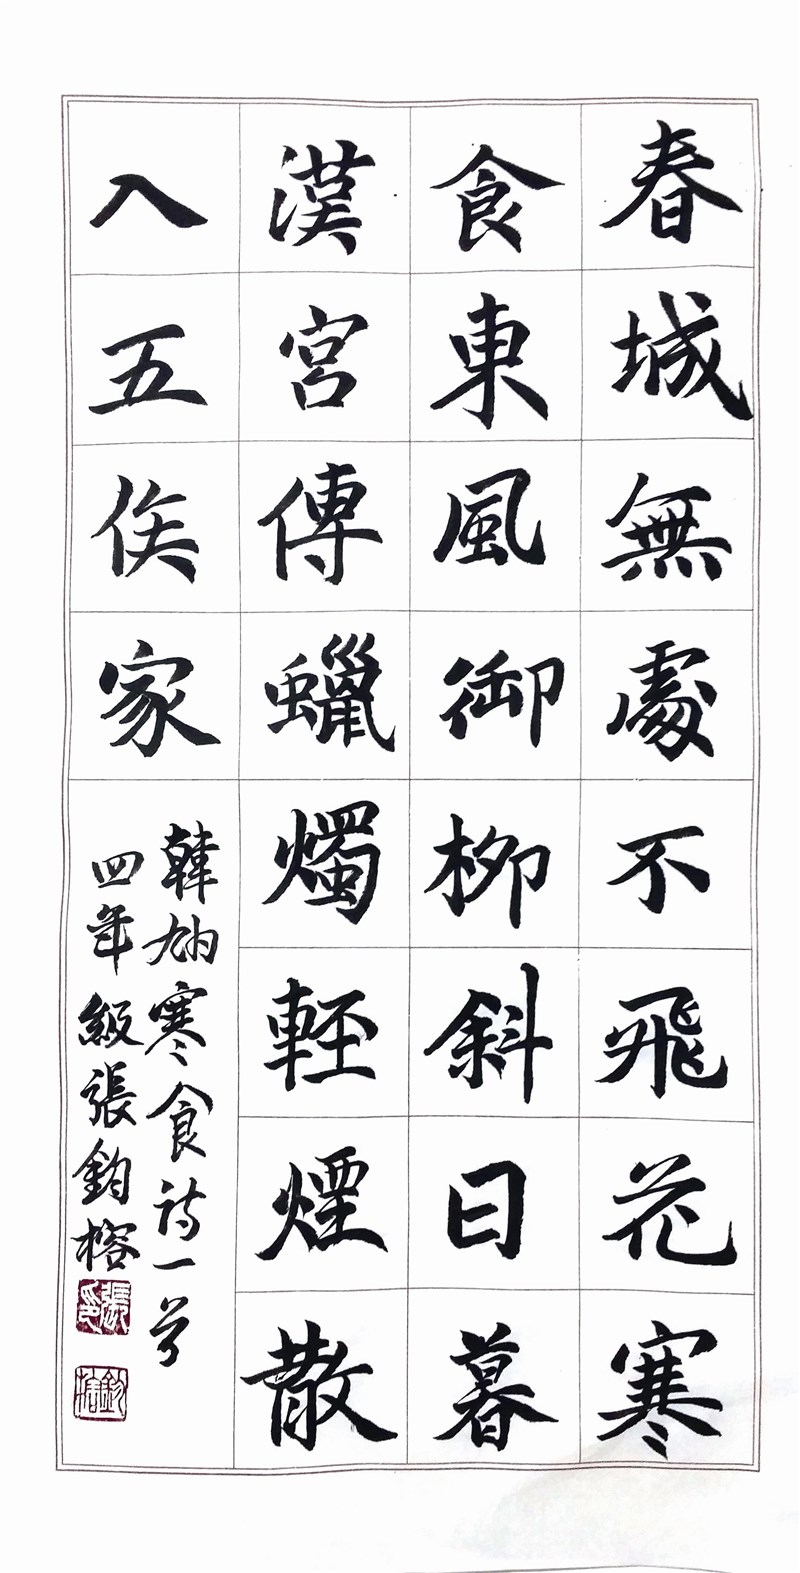 春城無處不飛花寒
食東風御柳斜日暮
漢宮傳蠟燭輕煙散
入五侯家
韓翃寒食詩一首
四年級張鈞榕
張印
鈞榕